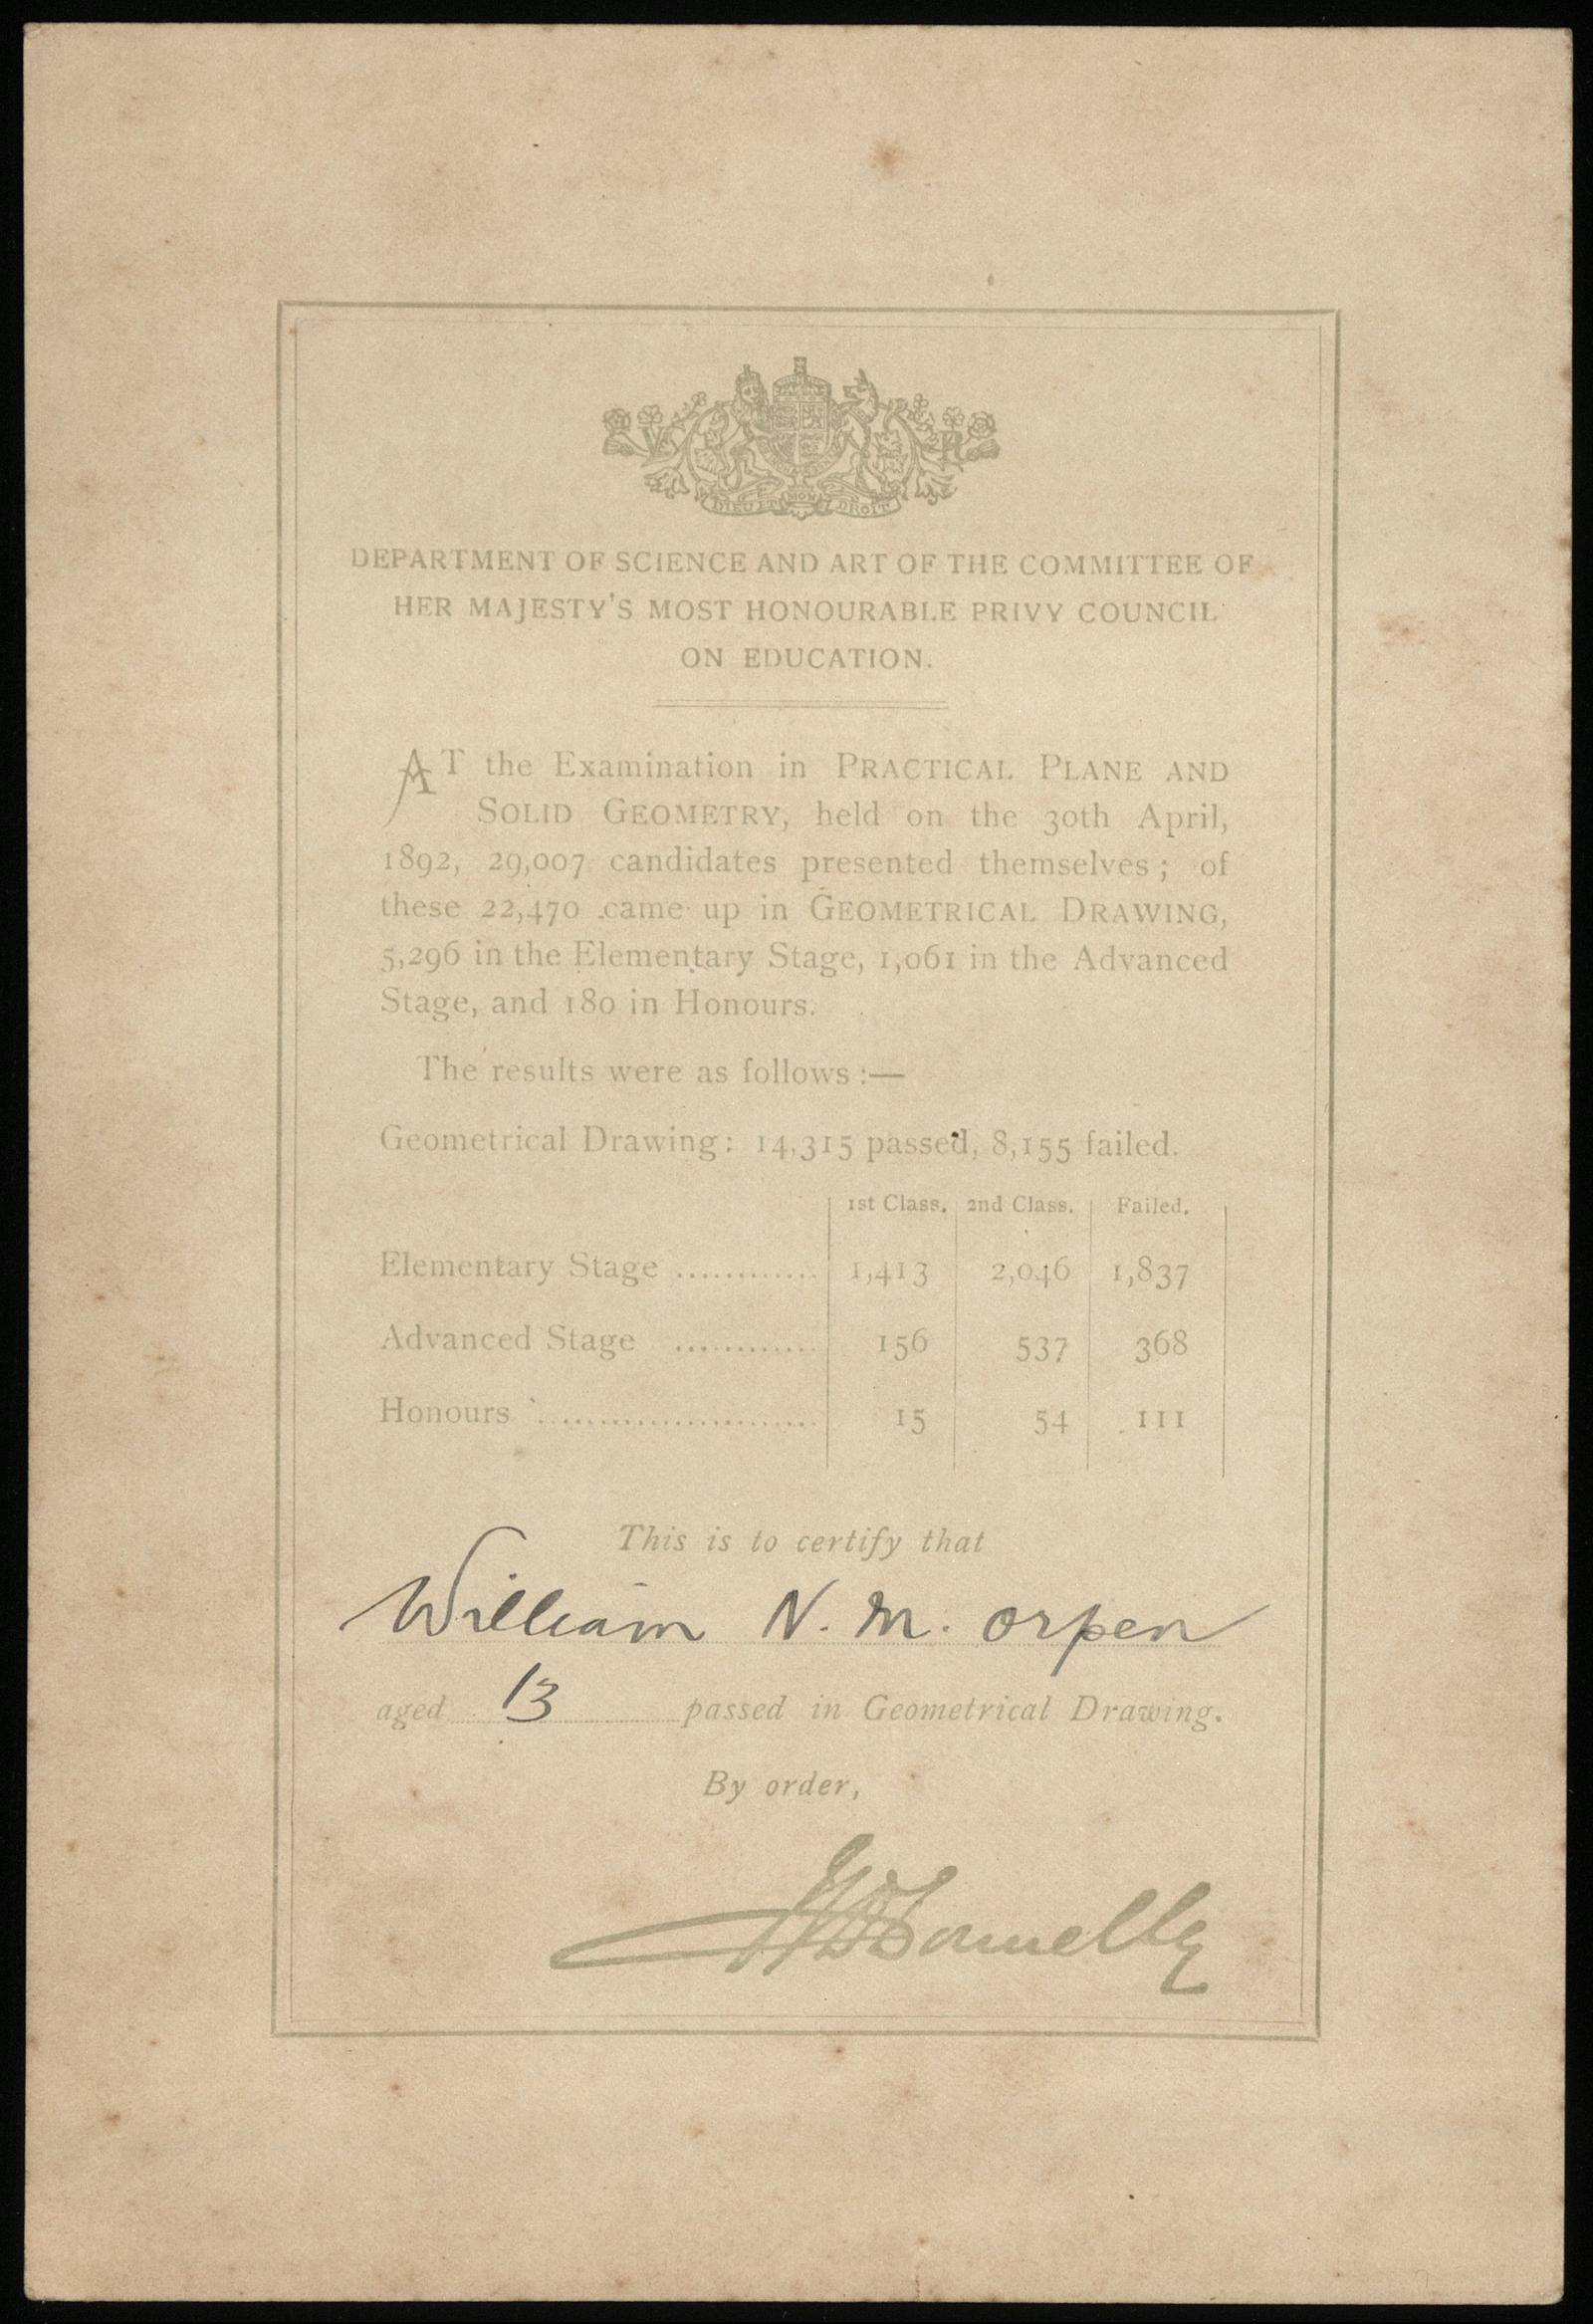 V R
DIEU ET MON DROIT
DEPARTMENT OF SCIENCE AND ART OF THE COMMITTEE OF
HER MAJESTY'S MOST HONOURABLE PRIVY COUNCIL
ON EDUCATION.
AT the Examination in PRACTICAL PLANE AND
SOLID GEOMETRY, held on the 30th April,
1892, 29,007 candidates presented themselves; of
these 22,470 came up in GEOMETRICAL DRAWING,
5,296 in the Elementary Stage, 1,061 in the Advanced
Stage, and 180 in Honours.
The results were as follows:—
Geometrical Drawing: 14,315 passed, 8,155 failed.
1st Class. 2nd Class. Failed.
Elementary Stage ............ 1,413 2,046 1,837
Advanced Stage ............ 156 537 368
Honours ....................... 15 54 111
This is to certify that
William N. M. Orpen
aged 13 passed in Geometrical Drawing.
By order,
Donnelly